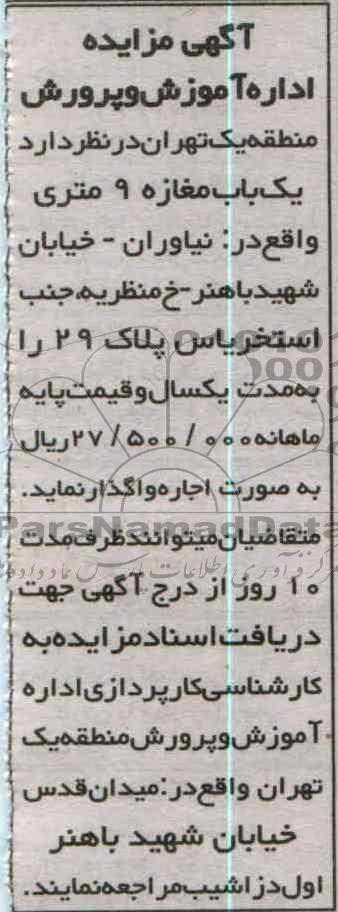 آگهی مزایده
اداره آموزش و پرورش
منطقه یک تهران در نظر دارد
یک باب مغازه ۹ متری
واقع در: نیاوران - خیابان
شهید باهنر -خ منظریه، جنب
استخر یاس پلاک ۲۹ را
به مدت یکسال و قیمت پایه
ماهانه ۲۷/۵۰۰/۰۰۰ ریال
به صورت اجاره واگذار نماید.
متقاضیان میتوانند ظرف مدت
۱۰ روز از درج آگهی جهت
دریافت اسناد مزایده به
کارشناسی کارپردازی اداره
آموزش و پرورش منطقه یک
تهران واقع در: میدان قدس
خیابان شهید باهنر
اول دزاشیب مراجعه نمایند.
ParsNamadData